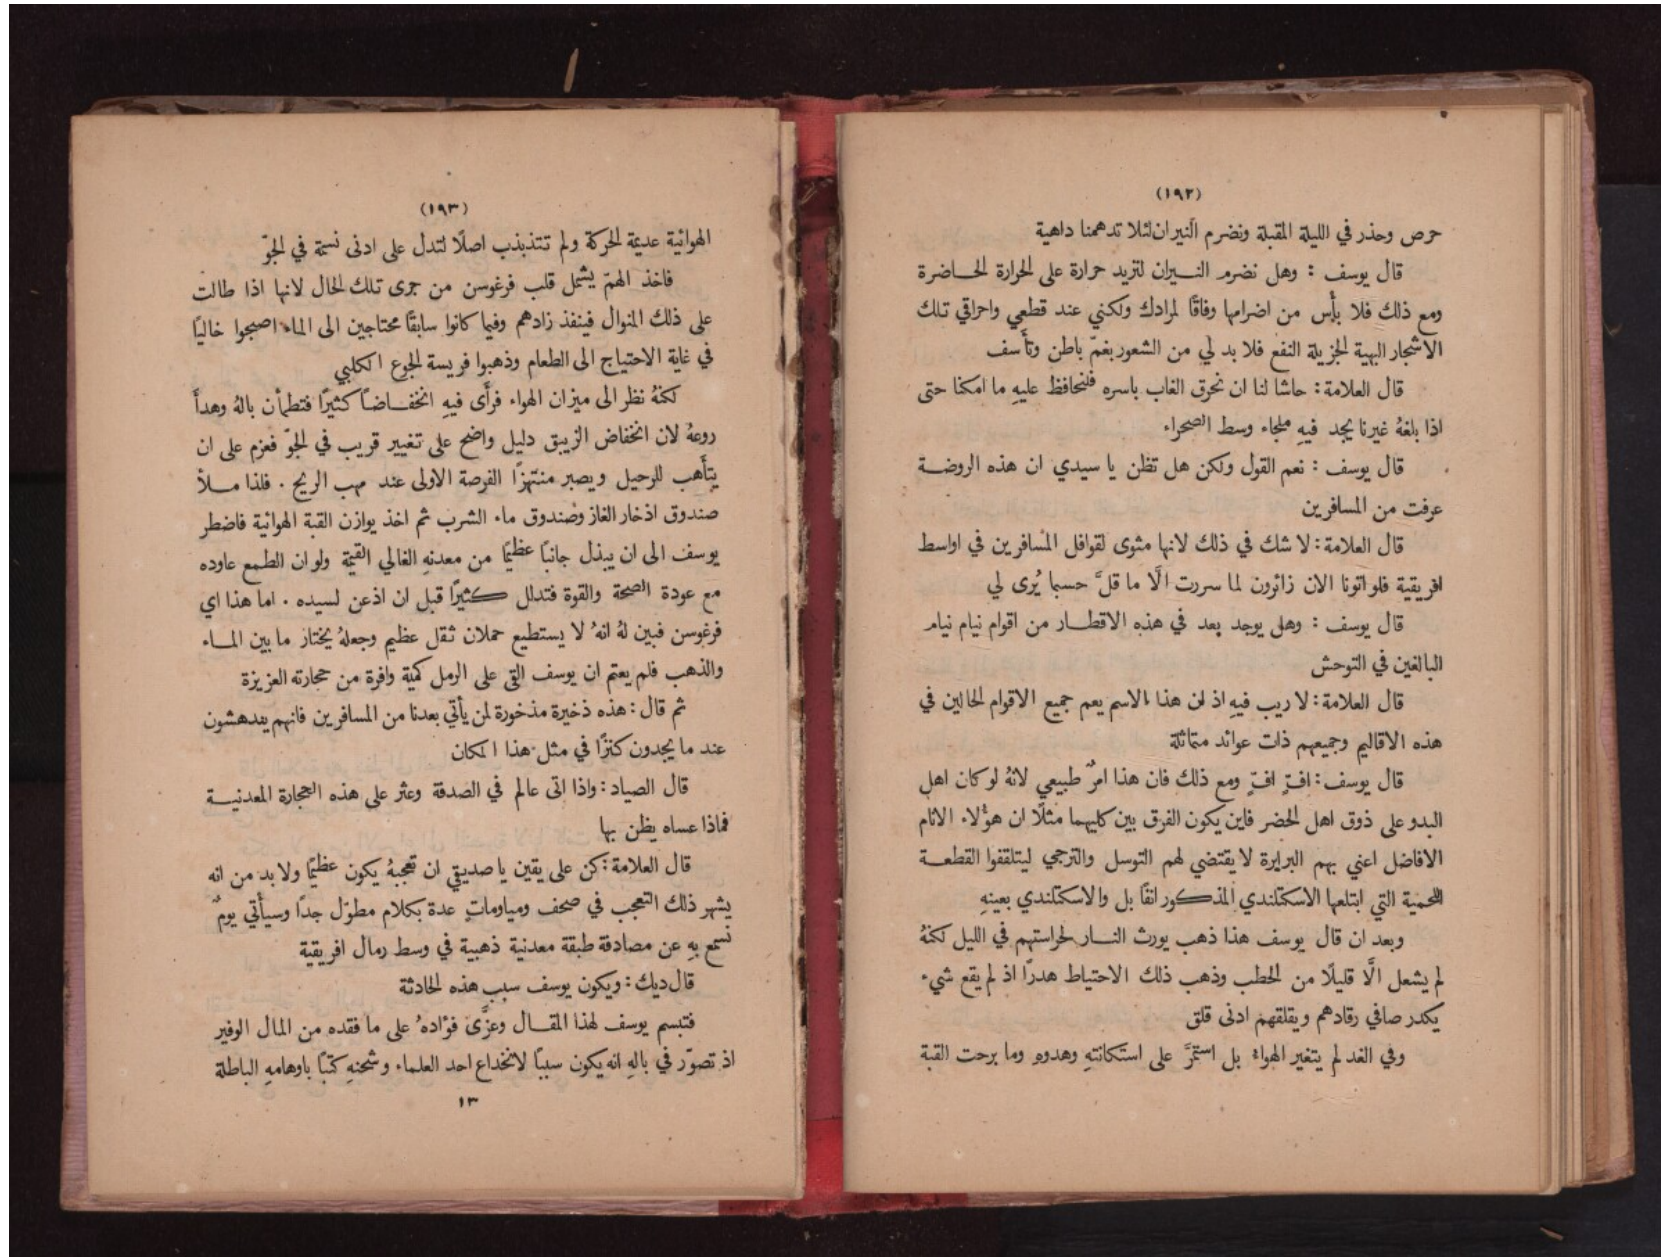 (١٩٢)
حرص وحذر في الليلة المقبلة ونضرم النيران لئلا تدهمنا داهية
قال يوسف : وهل نضرم النيران لتزيد حرارة على الحرارة الحاضرة
ومع ذلك فلا بأس من اضرامها وفاقًا لمرادك ولكني عند قطعي واحراقي تلك
الاشجار البهية الجزيلة النفع فلا بد لي من الشعور بغمّ باطن وتأسف
قال العلامة : حاشا لنا ان نحرق الغاب باسره فلنحافظ عليهِ ما امكنا حتى
اذا بلغهُ غيرنا يجد فيهِ ملجاء وسط الصحراء
قال يوسف : نعم القول ولكن هل تظن يا سيدي ان هذه الروضة
عرفت من المسافرين
قال العلامة : لا شك في ذلك لانها مثوى لقوافل المسافرين في اواسط
افريقية فلو اتونا الان زائرون لما سررت الَّا ما قلَّ حسبما يُرى لي
قال يوسف : وهل يوجد بعد في هذه الاقطار من اقوام نيام نيام
البالغين في التوحش
قال العلامة : لا ريب فيهِ اذ ان هذا الاسم يعم جميع الاقوام الحالين في
هذه الاقاليم وجميعهم ذات عوائد متماثلة
قال يوسف : افٍّ افٍّ ومع ذلك فان هذا امرٌ طبيعي لانهُ لو كان اهل
البدو على ذوق اهل الحضر فاين يكون الفرق بين كليهما مثلًا ان هؤلاء الانام
الافاضل اعني بهم البرابرة لا يقتضي لهم التوسل والترجي ليتلقفوا القطعة
اللحمية التي ابتلعها الاسكتلندي المذكور انفًا بل والاسكتلندي بعينهِ
وبعد ان قال يوسف هذا ذهب يورث النار لحراستهم في الليل لكنهُ
لم يشعل الَّا قليلًا من الحطب وذهب ذلك الاحتياط هدرًا اذ لم يقع شيء
يكدر صافي رقادهم ويقلقهم ادنى قلق
وفي الغد لم يتغير الهواء بل استمرَّ على استكانتهِ وهدوهِ وما برحت القبة
(١٩٣)
الهوائية عديمة الحركة ولم تتذبذب اصلًا لتدل على ادنى نسمة في الجوّ
فاخذ الهمّ يشمل قلب فرغوسن من جرى تلك الحال لانها اذا طالت
على ذلك المنوال فينفذ زادهم وفيما كانوا سابقًا محتاجين الى الماء اصبحوا خاليًا
في غاية الاحتياج الى الطعام وذهبوا فريسة الجوع الكلبي
لكنهُ نظر الى ميزان الهواء فرأَى فيهِ انخفاضًا كثيرًا فتطمأن بالهُ وهدأَ
روعهُ لان انخفاض الزيبق دليل واضح على تغيير قريب في الجوّ فعزم على ان
يتأَهب للرحيل ويصبر منتهزًا الفرصة الاولى عند مهب الريح . فلذا ملأ
صندوق اذخار الغاز وصندوق ماء الشرب ثم اخذ يوازن القبة الهوائية فاضطر
يوسف الى ان يبذل جانبًا عظيمًا من معدنهِ الغالي القيمة ولو ان الطمع عاوده
مع عودة الصحة والقوة فتدلل كثيرًا قبل ان اذعن لسيده . اما هذا اي
فرغوسن فبين لهُ انهُ لا يستطيع حملان ثقل عظيم وجعلهُ يختار ما بين الماء
والذهب فلم يعتم ان يوسف القى على الرمل كمية وافرة من حجارته العزيزة
ثم قال : هذه ذخيرة مذخورة لمن يأتي بعدنا من المسافرين فانهم يندهشون
عند ما يجدون كنزًا في مثل هذا المكان
قال الصياد : واذا اتى عالم في الصدفة وعثر على هذه الحجارة المعدنية
فماذا عساه يظن بها
قال العلامة : كن على يقين يا صديقي ان تعجبهُ يكون عظيمًا ولا بد من انه
يشهر ذلك التعجب في صحف ومياوماتٍ عدة بكلام مطوّل جدًا وسيأتي يومٌ
نسمع بهِ عن مصادفة طبقة معدنية ذهبية في وسط رمال افريقية
قال ديك : ويكون يوسف سبب هذه الحادثة
فتبسم يوسف لهذا المقال وعزَّى فؤادهُ على ما فقده من المال الوفير
اذ تصوّر في بالهِ انه يكون سببًا لانخداع احد العلماء وشحنهِ كتبًا باوهامهِ الباطلة
١٣